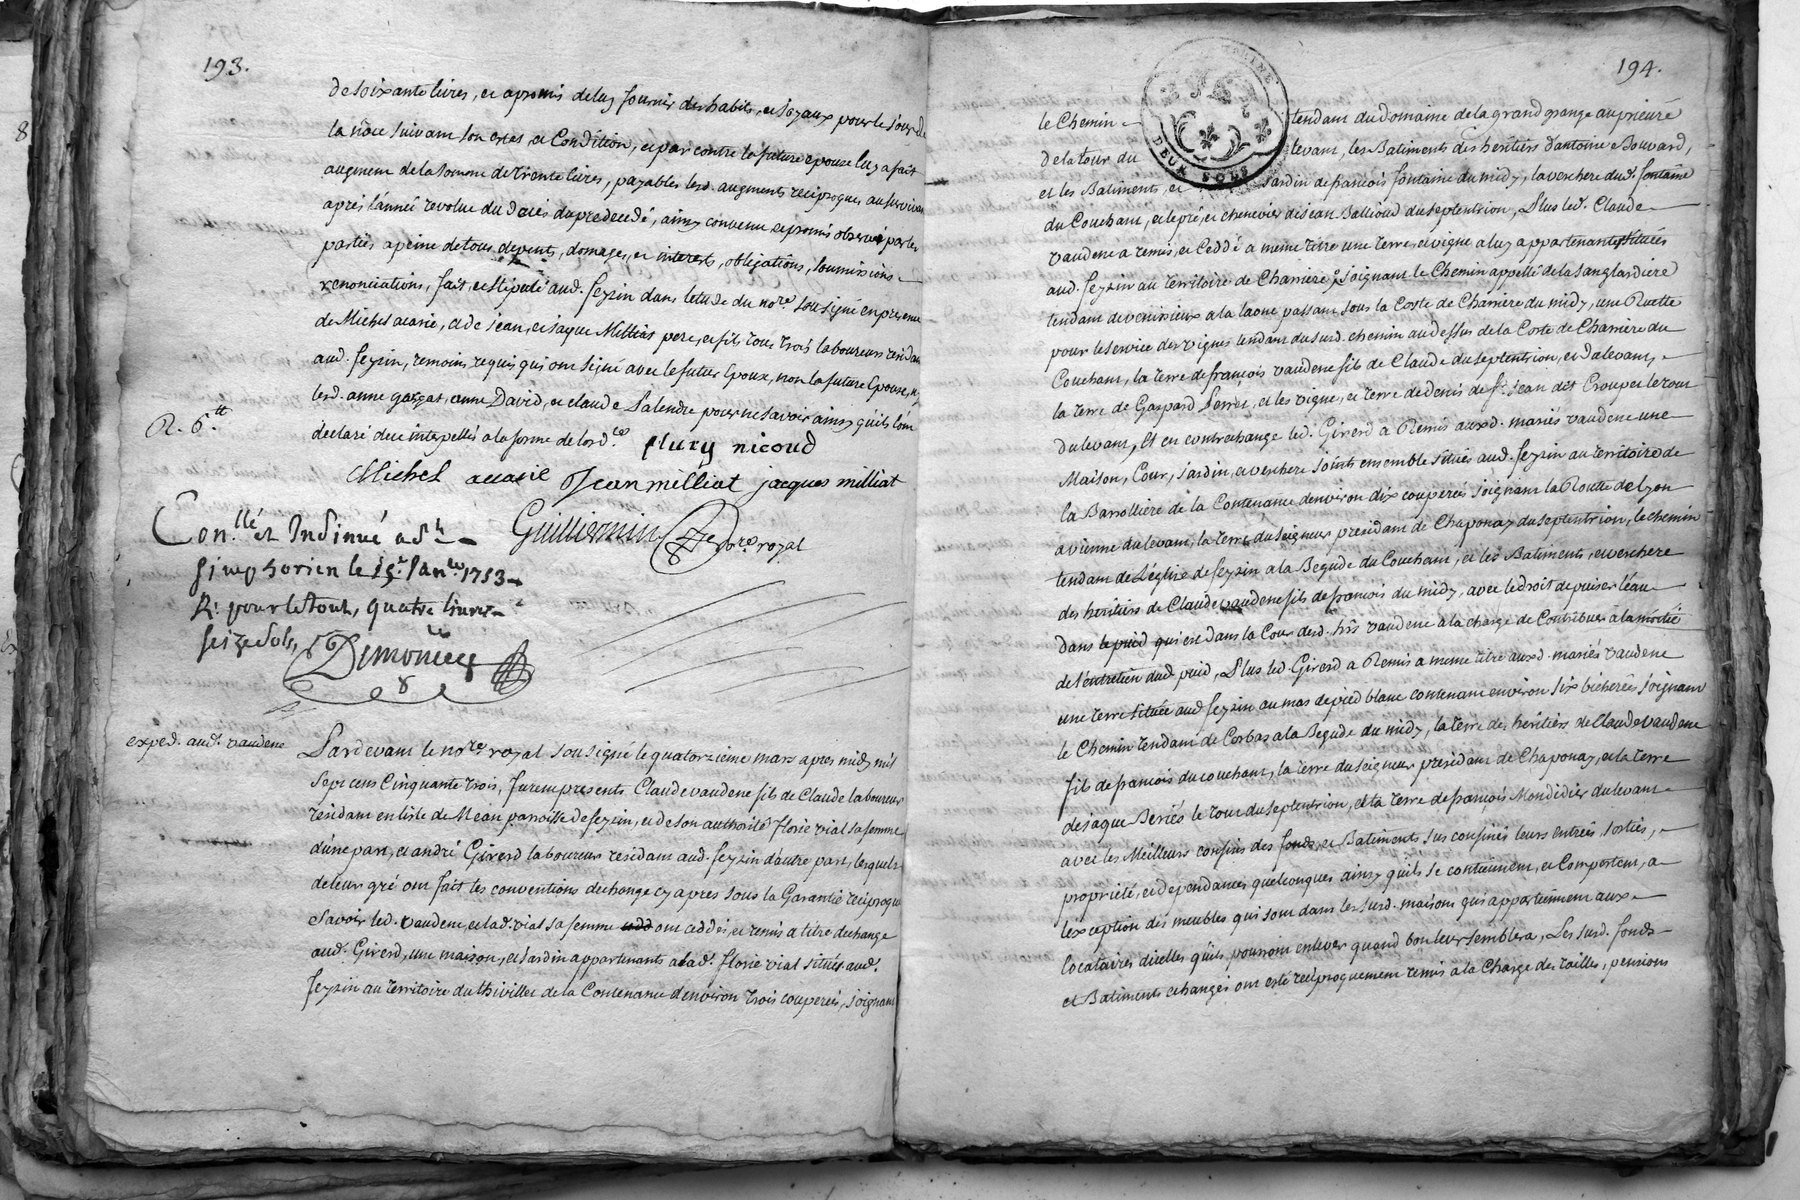 193.
de soixante livres, et a promis de luy fournir des habits, et joyaux pour le jour de
la nôce suivant son etat et Condition, et par contre la future epouze luy a fait
augment de la somme de trente livres, payables lesd. augments reciproques au survivant
après l'année revolue du deces du predecedé, ainsy convenu et promis observer par les
parties a peine de tous depents, domages, et interests, obligations, soumissions
renonciations, fait, et stipulé aud. feyzin dans letude du nore. sousigné en presence
de Michel acarie, et de jean, et jaque Milliat pere, et fils tous trois laboureurs residant
aud. feyzin, temoins requis qui ont signé avec le futur Epoux, non la future Epouze, ny
lesd. anne gazzat, anne David, et claude Lalendre pour ne savoir ainsy quils l'ont
declaré de ce interpellés a la forme de lord.ce
R. 6.tt
flury nicoud
Michel accarie Jean milliat jacques milliat
Guilliermin nore. royal
Con.llé et Insinué a St.
simphorien le 15.e Jan.er 1753
R: pour le tout, quatre livres
seize sols,
Demoncey
exped. aud. vaudene
Pardevant le nore. royal sousigné le quatorzieme mars apres midy mil
sept cens Cinquante trois, furent presents Claude vaudene fils de Claude laboureur
residant en l'isle de Mean paroisse de feyzin, et de son authorité florie vial sa femme
d'une part, et andré Girerd laboureur residant aud. feyzin d'autre part, lesquels
de leur gré ont fait les conventions dechange cy apres sous la Garantie reciproque
Savoir led. vaudene, et lad. vial sa femme ont ceddés, et remis a titre dechange
aud. Girerd, une maison, et jardin appartenants a lad. florie vial situés aud.
feyzin au territoire du thiviller de la Contenance d'environ trois couperées, joignant
194.
DEUX SOLS
le Chemin tendant du domaine de la grand grange au prieuré
de la tour du levant, les Batiments des héritiers d'antoine Bouvard,
et les Batiments, et jardin de francois fontaine du midy, la verchere dud. fontaine
du Couchant, et le pré, et chenevier de jean Ballioud du septentrion, Plus led. Claude
vaudene a remis, et Ceddé a même titre une terre, et vigne a luy appartenants situées
aud. feyzin au territoire de Charriere, joignant le Chemin appellé de la Sanglardiere
tendant de venissieux a la laone passant sous la Coste de Charriere du midy, une Ruette
pour le service des vignes tendant du surd. chemin au dessus de la Coste de Charriere du
Couchant, la terre de françois vaudene fils de Claude du septentrion, et du levant,
la terre de Gaspard Perret, et les vigne, et terre de denis de St. jean dit Croupet le tout
du levant, Et en contrechange led. Girerd a Remis auxd. mariés vaudene une
Maison, Cour, jardin, et verchere joints ensemble situés aud. feyzin au territoire de
la Barolliere de la Contenance denviron dix couperées joignant la Routte de Lyon
a vienne du levant, la terre du seigneur president de Chaponay du septentrion, le chemin
tendant de L'église de feyzin a la Begude du Couchant, et les Batiments, et verchere
des heritiers de Claude vaudene fils de francois du midy, avec le droit de puiser l'eau
dans le puid qui est dans la Cour desd. hrs vaudene a la charge de Contribuer a la moitié
de l'entretien dud. puid, Plus led. Girerd a Remis a meme titre auxd. mariés vaudene
une terre située aud. feyzin au mas de pied blanc contenant environ six bicherées joignant
le Chemin tendant de Corbas a la Begude du midy, la terre des heritiers de Claude vaudene
fils de francois du couchant, la terre du seigneur president de Chaponay, et la terre
de jaque Beriés le tour du septentrion, et la terre de francois Mondidier du levant
avec les Meilleurs confins des fonds, et Batiments sus confinés leurs entrées, sorties,
propriété, et dependances quelconques ainsy quils se contiennent, et Comportent, a
l'exception des meubles qui sont dans les surd. maisons qui appartiennent aux
locataires dicelles qu'ils pourront enlever quand bon leur semblera, Les surd. fonds
et Batiments echangés ont esté reciproquement remis a la Charge des tailles, pensions